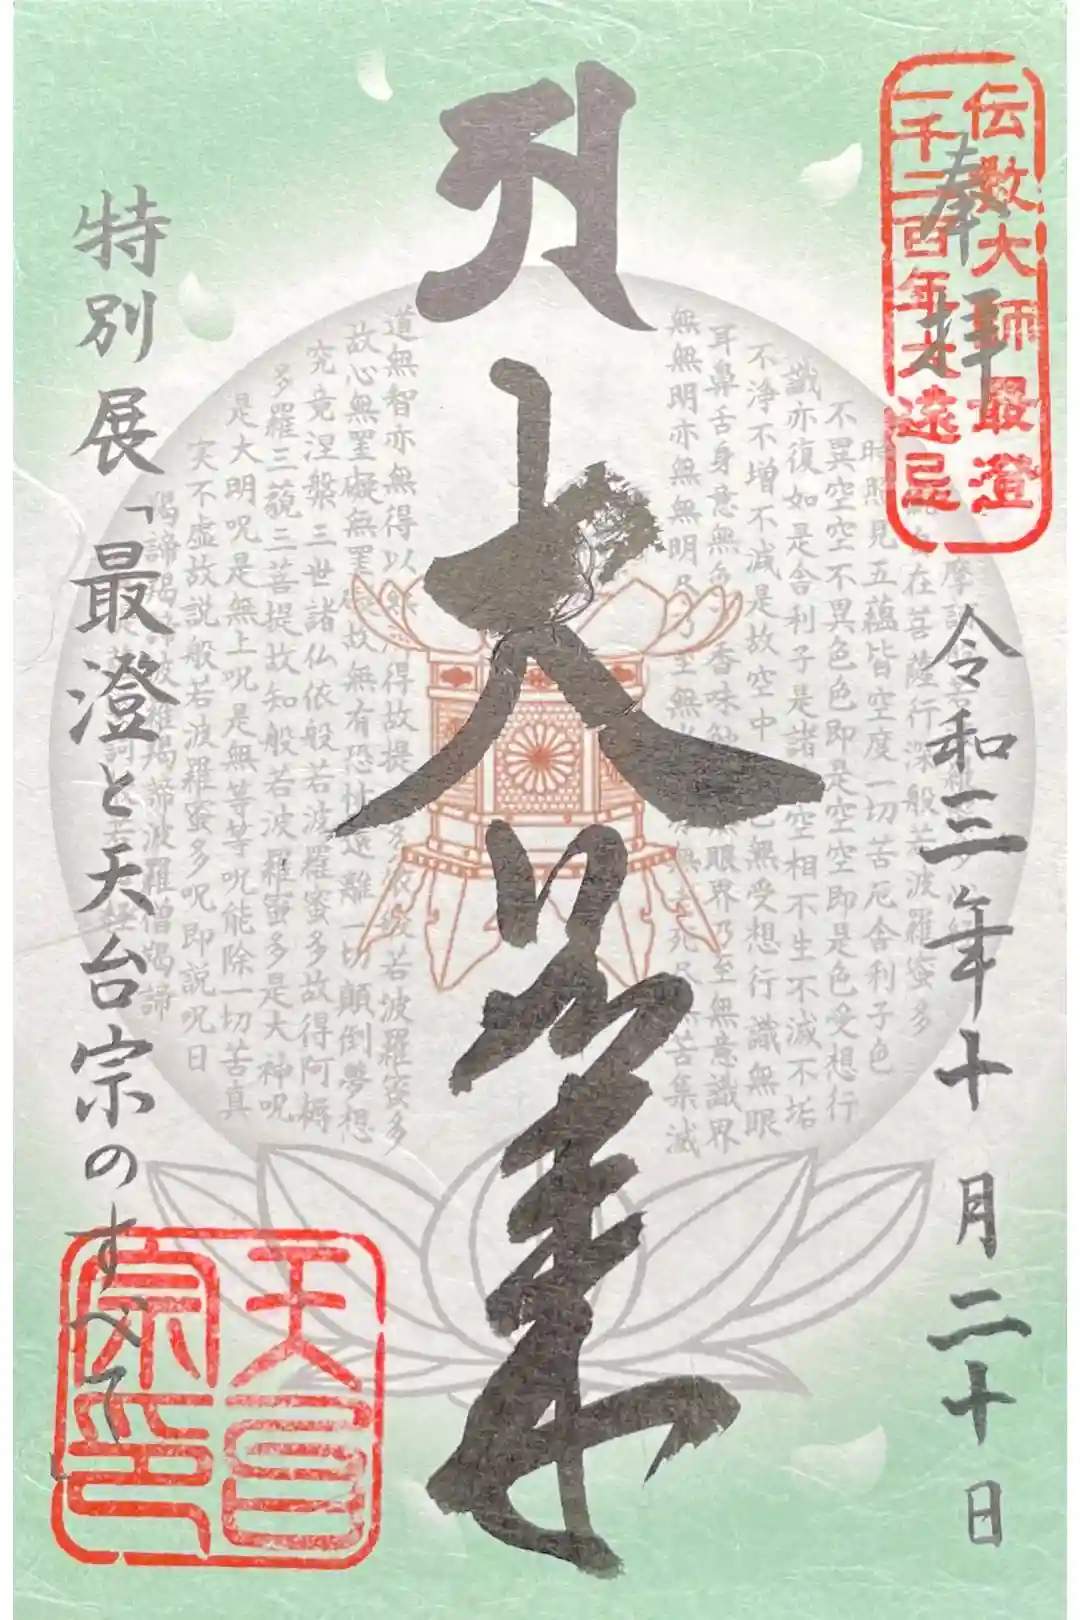 伝教大師最澄
一千二百年大遠忌
奉拝
令和三年十月二十日
大
在菩薩行深般若波羅蜜多
時照見五蘊皆空度一切苦厄舎利子色
不異空空不異色色即是空空即是色受想行
識亦復如是舎利子是諸法空相不生不滅不垢
不浄不増不減是故空中無色無受想行識無眼
耳鼻舌身意無色声香味触法無眼界乃至無意識界
無無明亦無無明尽乃至無老死亦無老死尽無苦集滅
道無智亦無得以無所得故菩提薩埵依般若波羅蜜多
故心無罣礙無罣礙故無有恐怖遠離一切顛倒夢想
究竟涅槃三世諸仏依般若波羅蜜多故得阿耨
多羅三藐三菩提故知般若波羅蜜多是大神呪
是大明呪是無上呪是無等等呪能除一切苦真
実不虚故説般若波羅蜜多呪即説呪曰
羯諦羯諦波羅羯諦波羅僧羯諦
特別展「最澄と天台宗のすべて」
天台
宗印